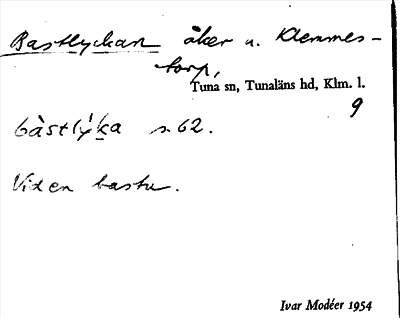 Bastlyckan åker u. Klemmes-
torp,
Tuna sn, Tunaläns hd, Klm. l.
9
bàstlýka s. 62.
Vid en bastu.
Ivar Modéer 1954